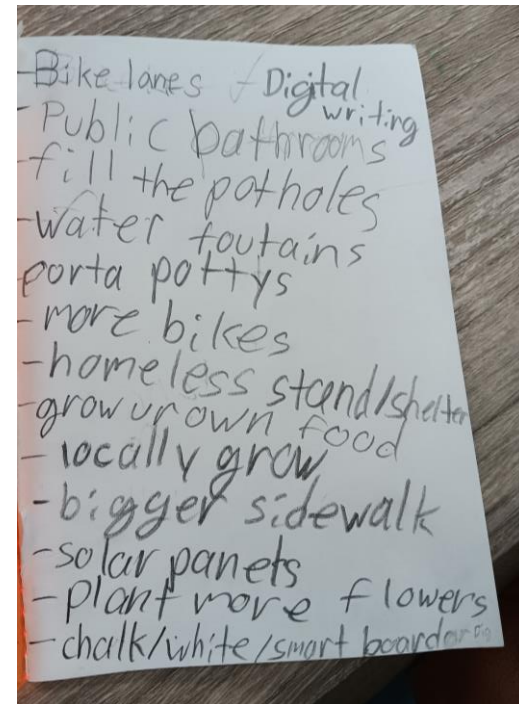 -Bike lanes - Digital
writing
-Public bathrooms
-fill the potholes
-water foutains
porta pottys
-more bikes
-homeless stand/shelter
-grow ur own food
-locally grow
-bigger sidewalk
-solar panels
-plant more flowers
-chalk/white/smart board